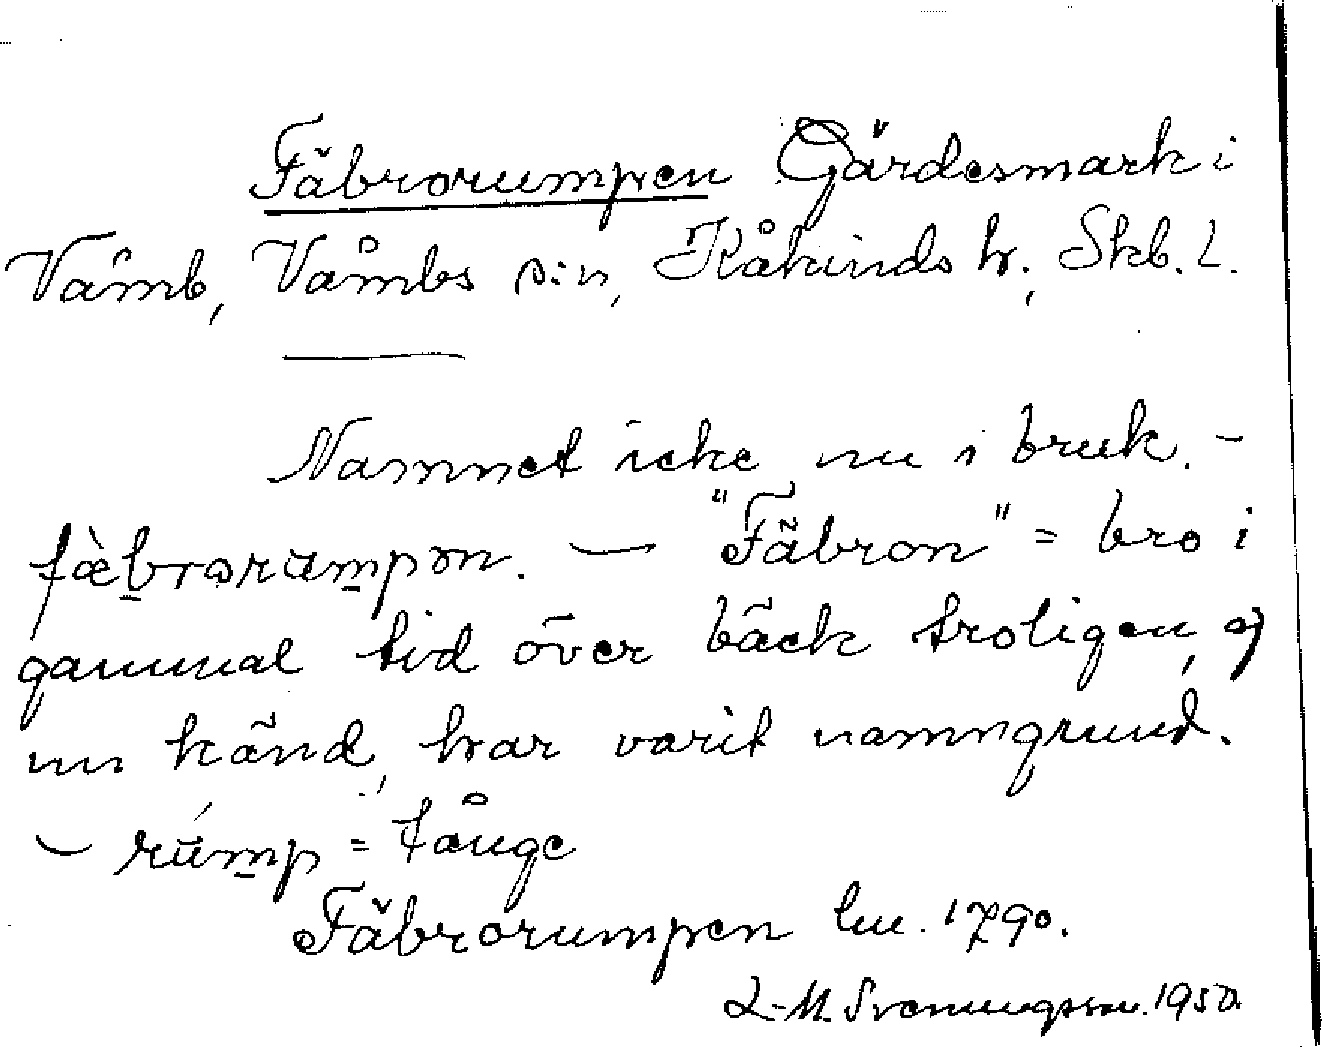 Fäbrorumpen Gärdesmark i
Våmb, Våmbs s:n, Kåkinds hr, Skb. l.
Namnet icke nu i bruk. –
fæ̀brorumpən. — "Fäbron" = bro i
gammal tid över bäck troligen, ej
nu känd, har varit namngrund.
– rúmp = tånge
Fäbrorumpen lm. 1790.
L-M. Svenungsson. 1950.